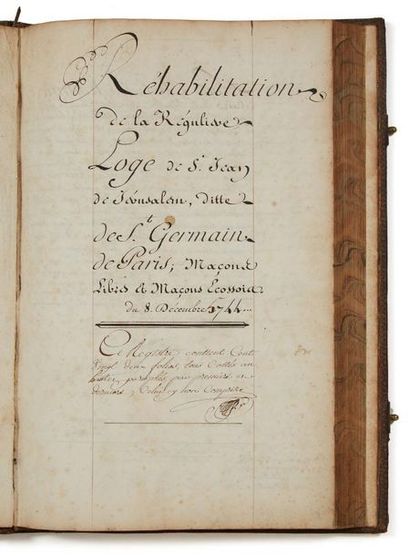 Réhabilitation
de la Réguliere
Loge de St. Jean
de Jérusalem, ditte
de St. Germain
de Paris; Maçons
Libres et Maçons Ecossois
du 8. Décembre 5744
Ce Registre contient Cent
Vingt deux folios, tous Cottés
premier et
dernier,